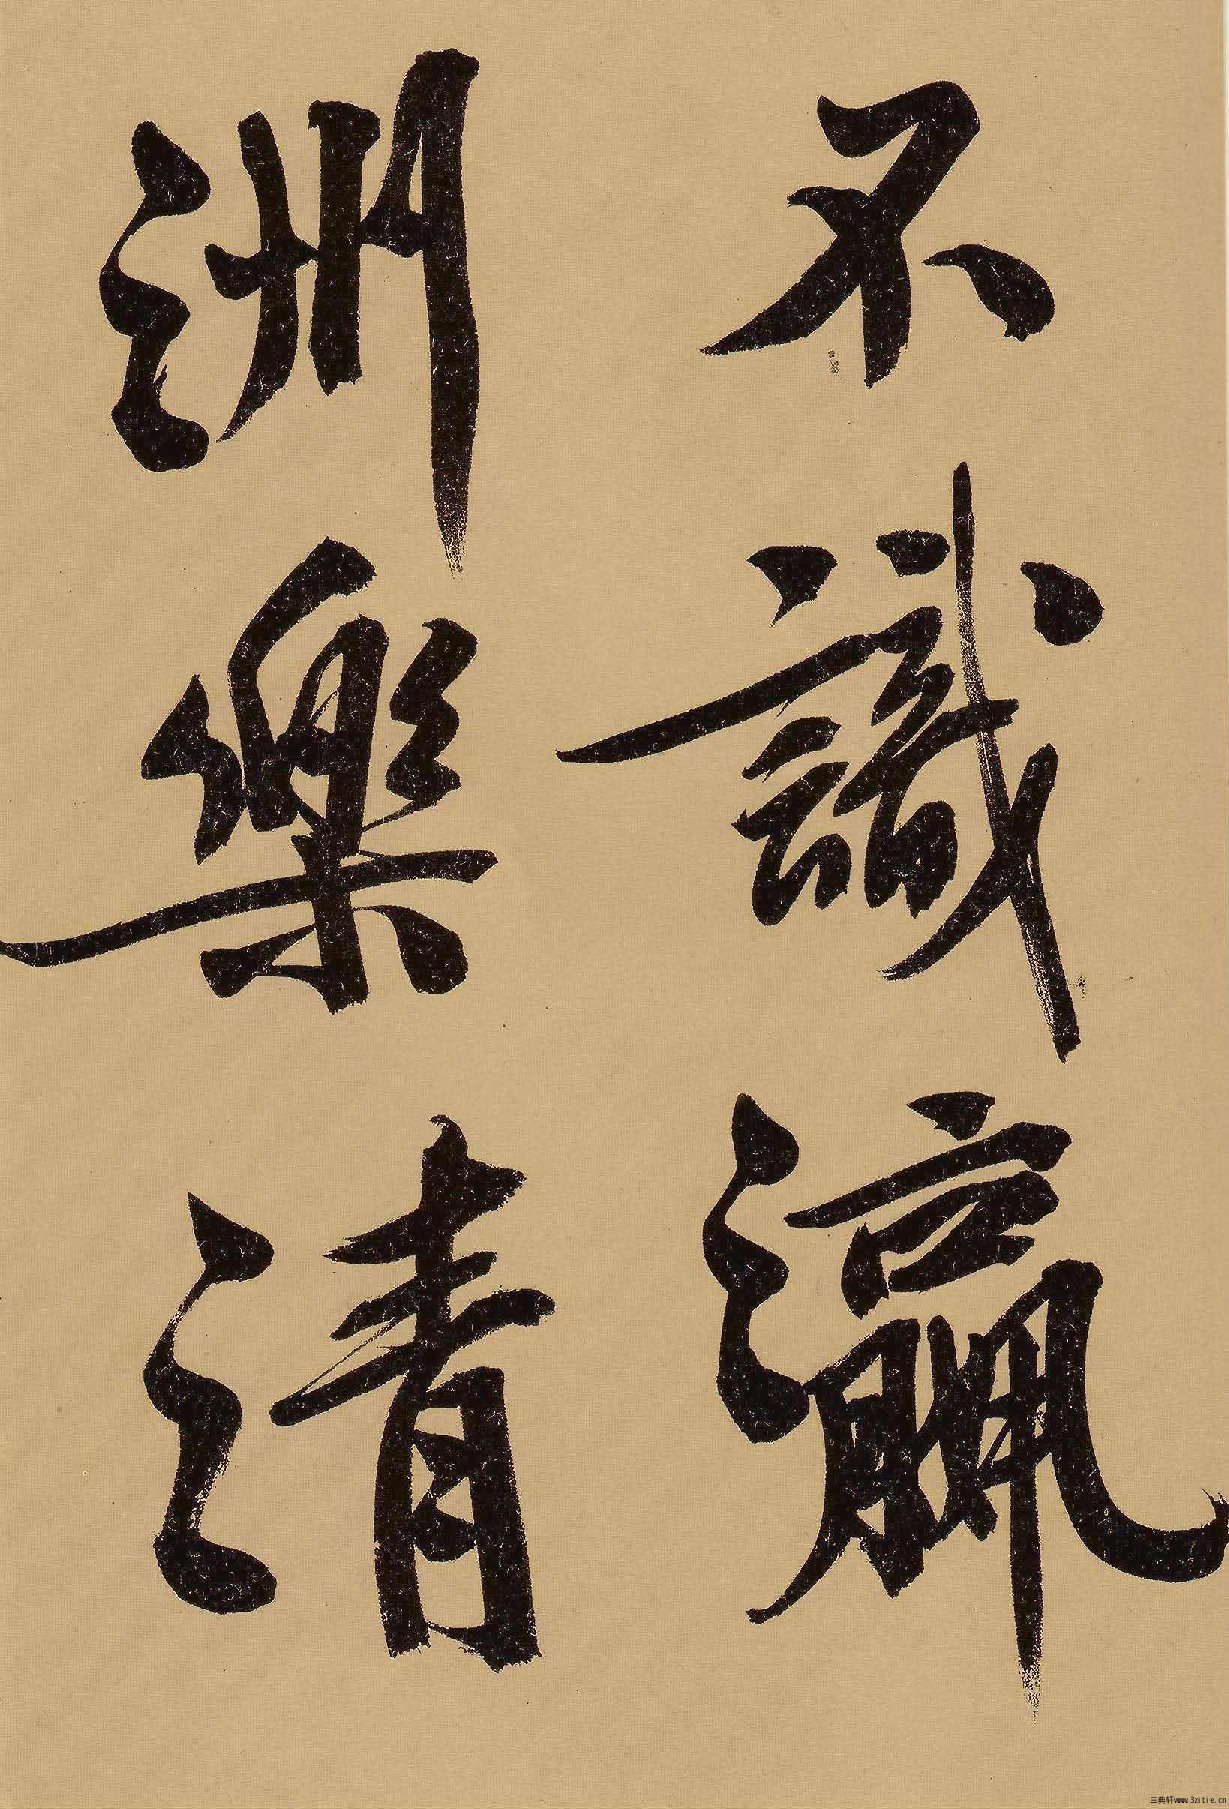 不識瀛
洲樂清
三典轩www.3zitie.cn